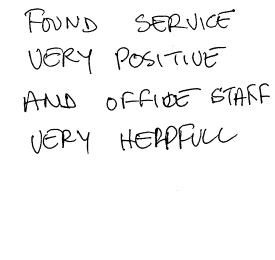 FOUND SERVICE
VERY POSITIVE
AND OFFICE STAFF
VERY HELPFULL